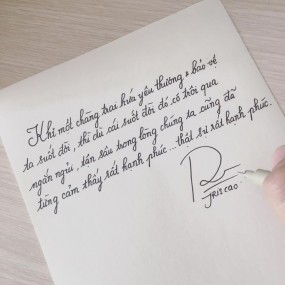 Khi một chàng trai hứa yêu thương & bảo vệ
ta suốt đời, thì dù cái suốt đời đó có trôi qua
ngắn ngủi, tận sâu trong lòng chúng ta cũng đã
từng cảm thấy rất hạnh phúc... thật sự rất hạnh phúc.
JRIS CAO